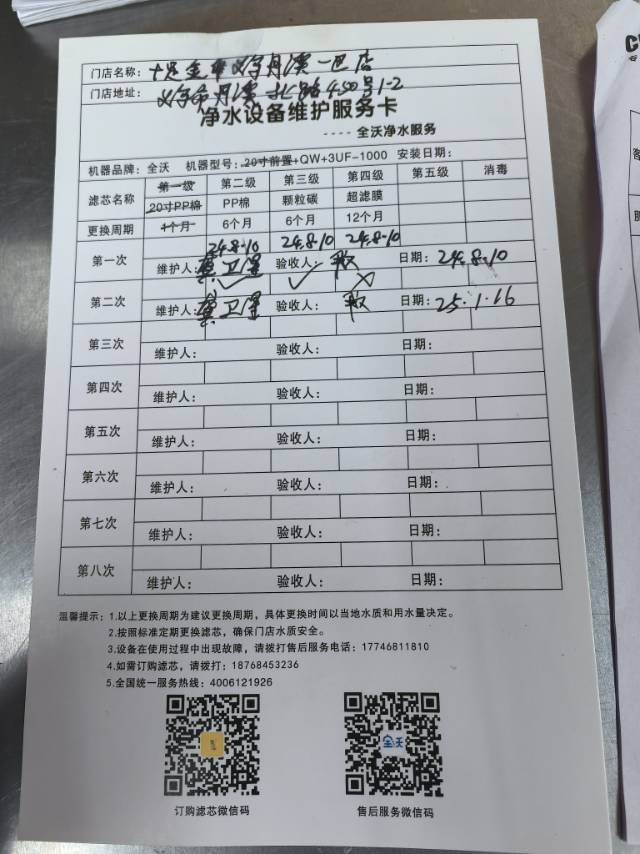 门店名称：十足金華义乌丹溪一巴店
门店地址：义乌市丹溪北路450号1-2
净水设备维护服务卡
---- 全沃净水服务
机器品牌：全沃 机器型号：20寸前置+QW+3UF-1000 安装日期：
滤芯名称 第一级 第二级 第三级 第四级 第五级 消毒
20寸PP棉 PP棉 颗粒碳 超滤膜
更换周期 1个月 6个月 6个月 12个月
第一次 24.8.10 24.8.10 24.8.10
维护人： 卫 验收人： 日期：24.8.10
第二次 ✓ ✓ ✗
维护人： 卫 验收人： 日期：25.1.16
第三次
维护人： 验收人： 日期：
第四次
维护人： 验收人： 日期：
第五次
维护人： 验收人： 日期：
第六次
维护人： 验收人： 日期：
第七次
维护人： 验收人： 日期：
第八次
维护人： 验收人： 日期：
温馨提示：1.以上更换周期为建议更换周期，具体更换时间以当地水质和用水量决定。
2.按照标准定期更换滤芯，确保门店水质安全。
3.设备在使用过程中出现故障，请拨打售后服务电话：17746811810
4.如需订购滤芯，请拨打：18768453236
5.全国统一服务热线：4006121926
全沃
订购滤芯微信码 售后服务微信码